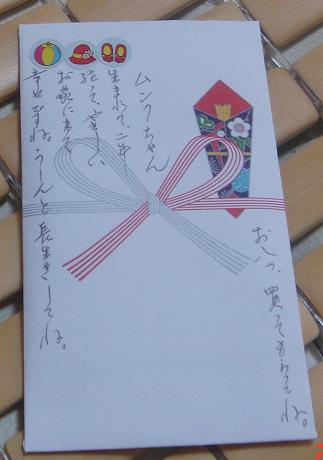 ムンクちゃん
生まれて、二年
経って、やさしい
お家に来て
幸せですね。うーんと長生きしてね。
お八つ、買ってもらってね。